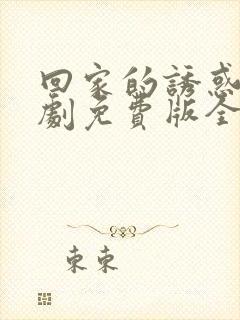 回家的誘惑
劇免費版全
束束